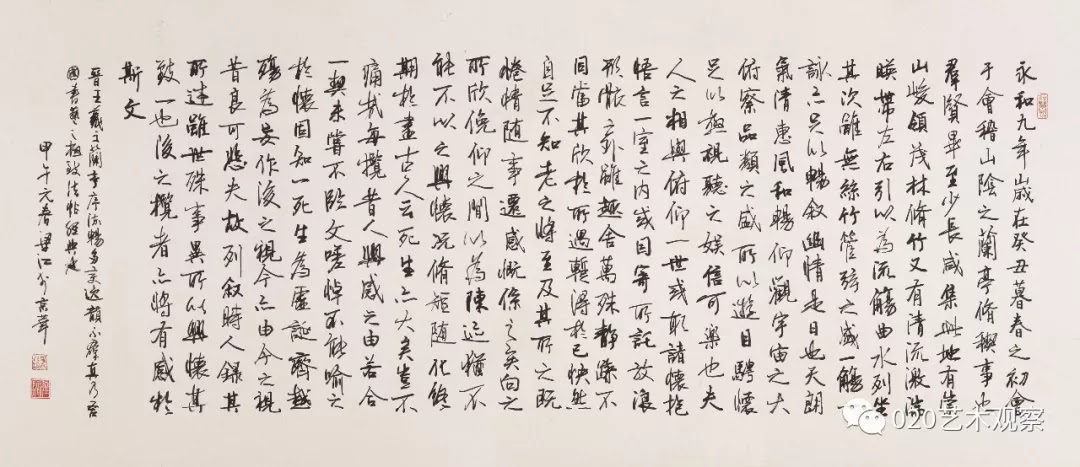 永和九年歲在癸丑暮春之初會
于會稽山陰之蘭亭脩禊事也
羣賢畢至少長咸集此地有崇
山峻領茂林脩竹又有清流激湍
暎帶左右引以為流觴曲水列坐
其次雖無絲竹管弦之盛一觴一
詠亦足以暢敘幽情是日也天朗
氣清惠風和暢仰觀宇宙之大
俯察品類之盛所以遊目騁懷
足以極視聽之娛信可樂也夫
人之相與俯仰一世或取諸懷抱
悟言一室之內或因寄所託放浪
形骸之外雖趣舍萬殊靜躁不
同當其欣於所遇暫得於己快然
自足不知老之將至及其所之既
惓情隨事遷感慨係之矣向之
所欣俛仰之閒以為陳迹猶不
能不以之興懷況脩短隨化終
期於盡古人云死生亦大矣豈不
痛哉每攬昔人興感之由若合
一契未嘗不臨文嗟悼不能喻之
於懷固知一死生為虛誕齊彭
殤為妄作後之視今亦由今之視
昔良可悲夫故列敘時人錄其
所述雖世殊事異所以興懷其
致一也後之攬者亦將有感於
斯文
晉王羲之蘭亭序流暢多變逸韻不羣真乃吾
國書藝之極致法帖經典也
甲午元春梁江於京華
020艺术观察